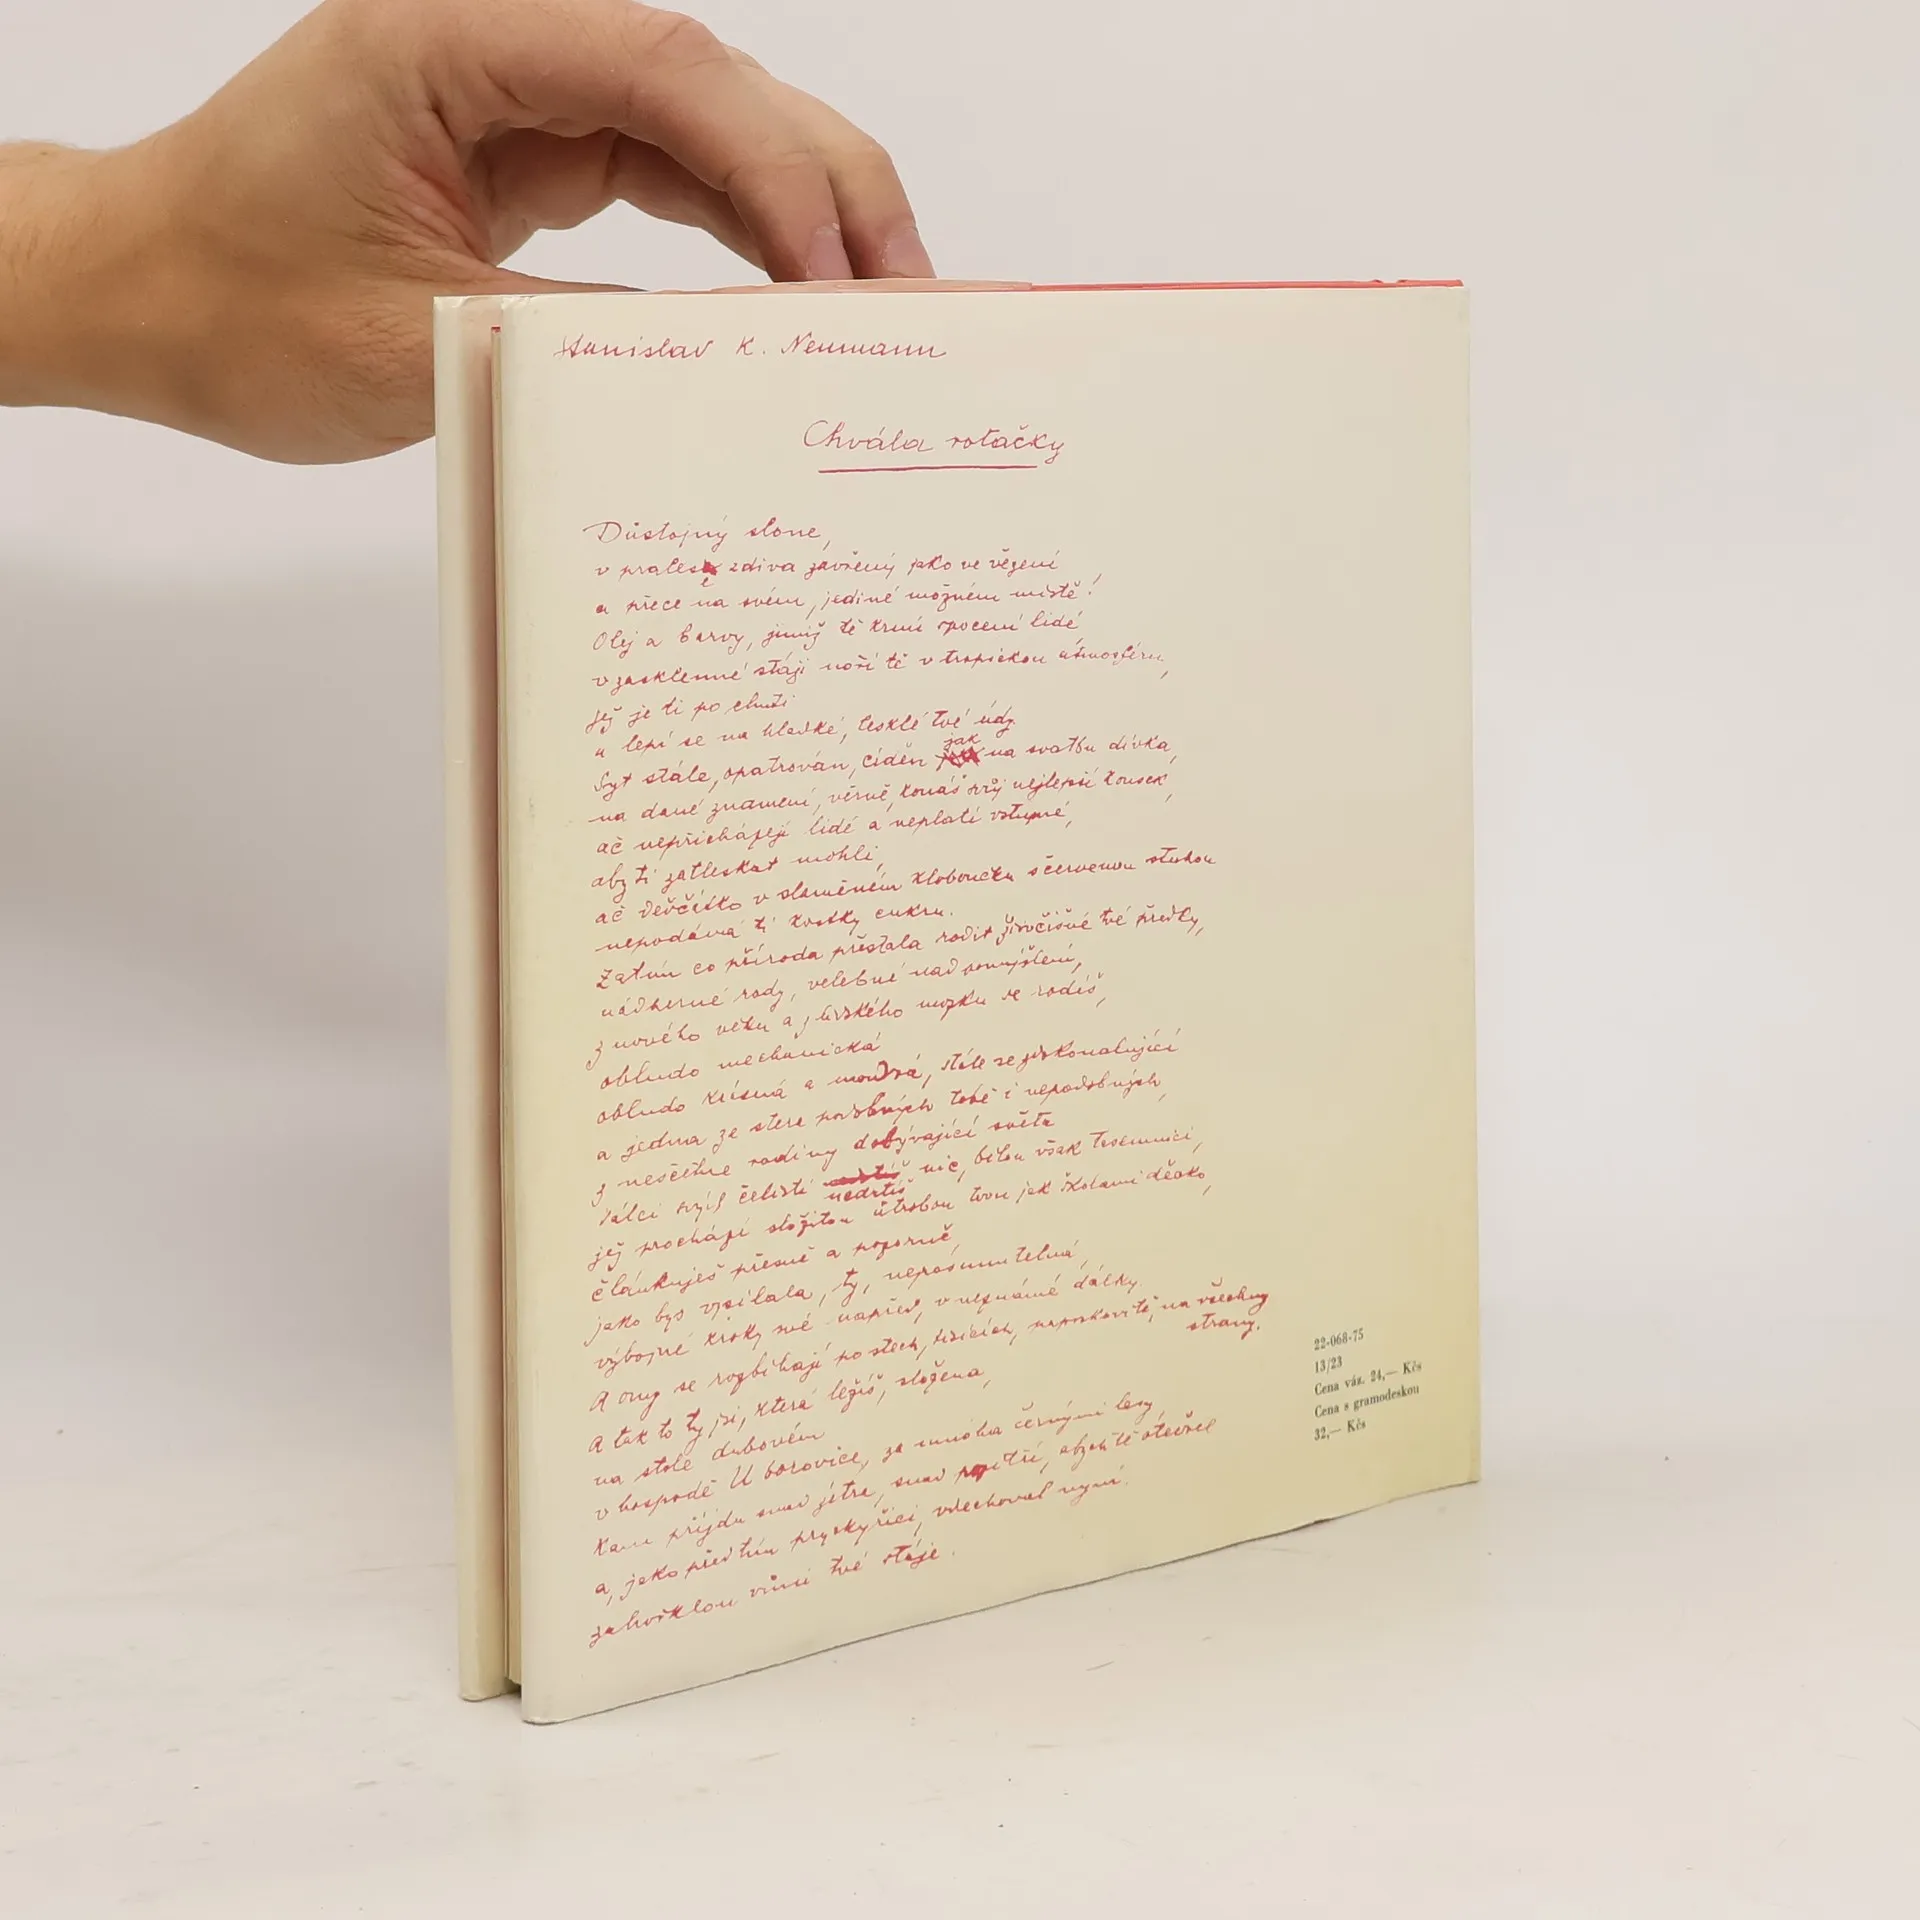 Stanislav K. Neumann
Chvála rotačky
Důstojný slone,
v pralese zdiva zavřený jako ve vězení
a přece na svém, jediné možném místě!
Olej a barvy, jimiž tě krmí zpocení lidé
v zasklenné stáji noří tě v tropickou atmosféru,
jež je ti po chuti
a lepí se na hladké, lesklé tvé údy.
Syt stále, opatrován, cíděn jak na svatbu dívka,
na dané znamení, věrně, konáš svůj nejlepší kousek,
ač nepřicházejí lidé a neplatí vstupné,
aby ti zatleskat mohli,
ač děvčátko v slaměném kloboučku s červenou stuhou
nepodává ti kostky cukru.
Zatím co příroda přestala rodit živočišné tvé předky,
nádherné rody, velebné nad pomyšlení,
z nového věku a z lidského mozku se rodíš,
obludo mechanická
obludo krásná a moudrá, stále se zdokonalující
a jedna ze stera podobných tobě i nepodobných,
z nesčetné rodiny dobývající světa
Válci svých čelistí nedrtíš nic, bělou však tesemnici,
jež prochází složitou útrobou tvou jak školami děcko,
článkuješ přesně a pozorně,
jako bys vysílala, ty, neposunutelná,
výbojné kroky své napřed, v neznámé dálky.
A ony se rozbíhají po stech, tisících, naposkoritě, na všechny
strany.
A tak to ty jsi, která ležíš, složena,
na stole dubovém
v hospodě U borovice, za mnoha černými lesy,
kam přijdu snad zítra, snad pozítří, abych tě otevřel
a, jako předtím pryskyřici, vdechoval nyní
zahořklou vůni tvé stáje.
22-068-75
13/23
Cena váz. 24,— Kčs
Cena s gramodeskou
32,— Kčs